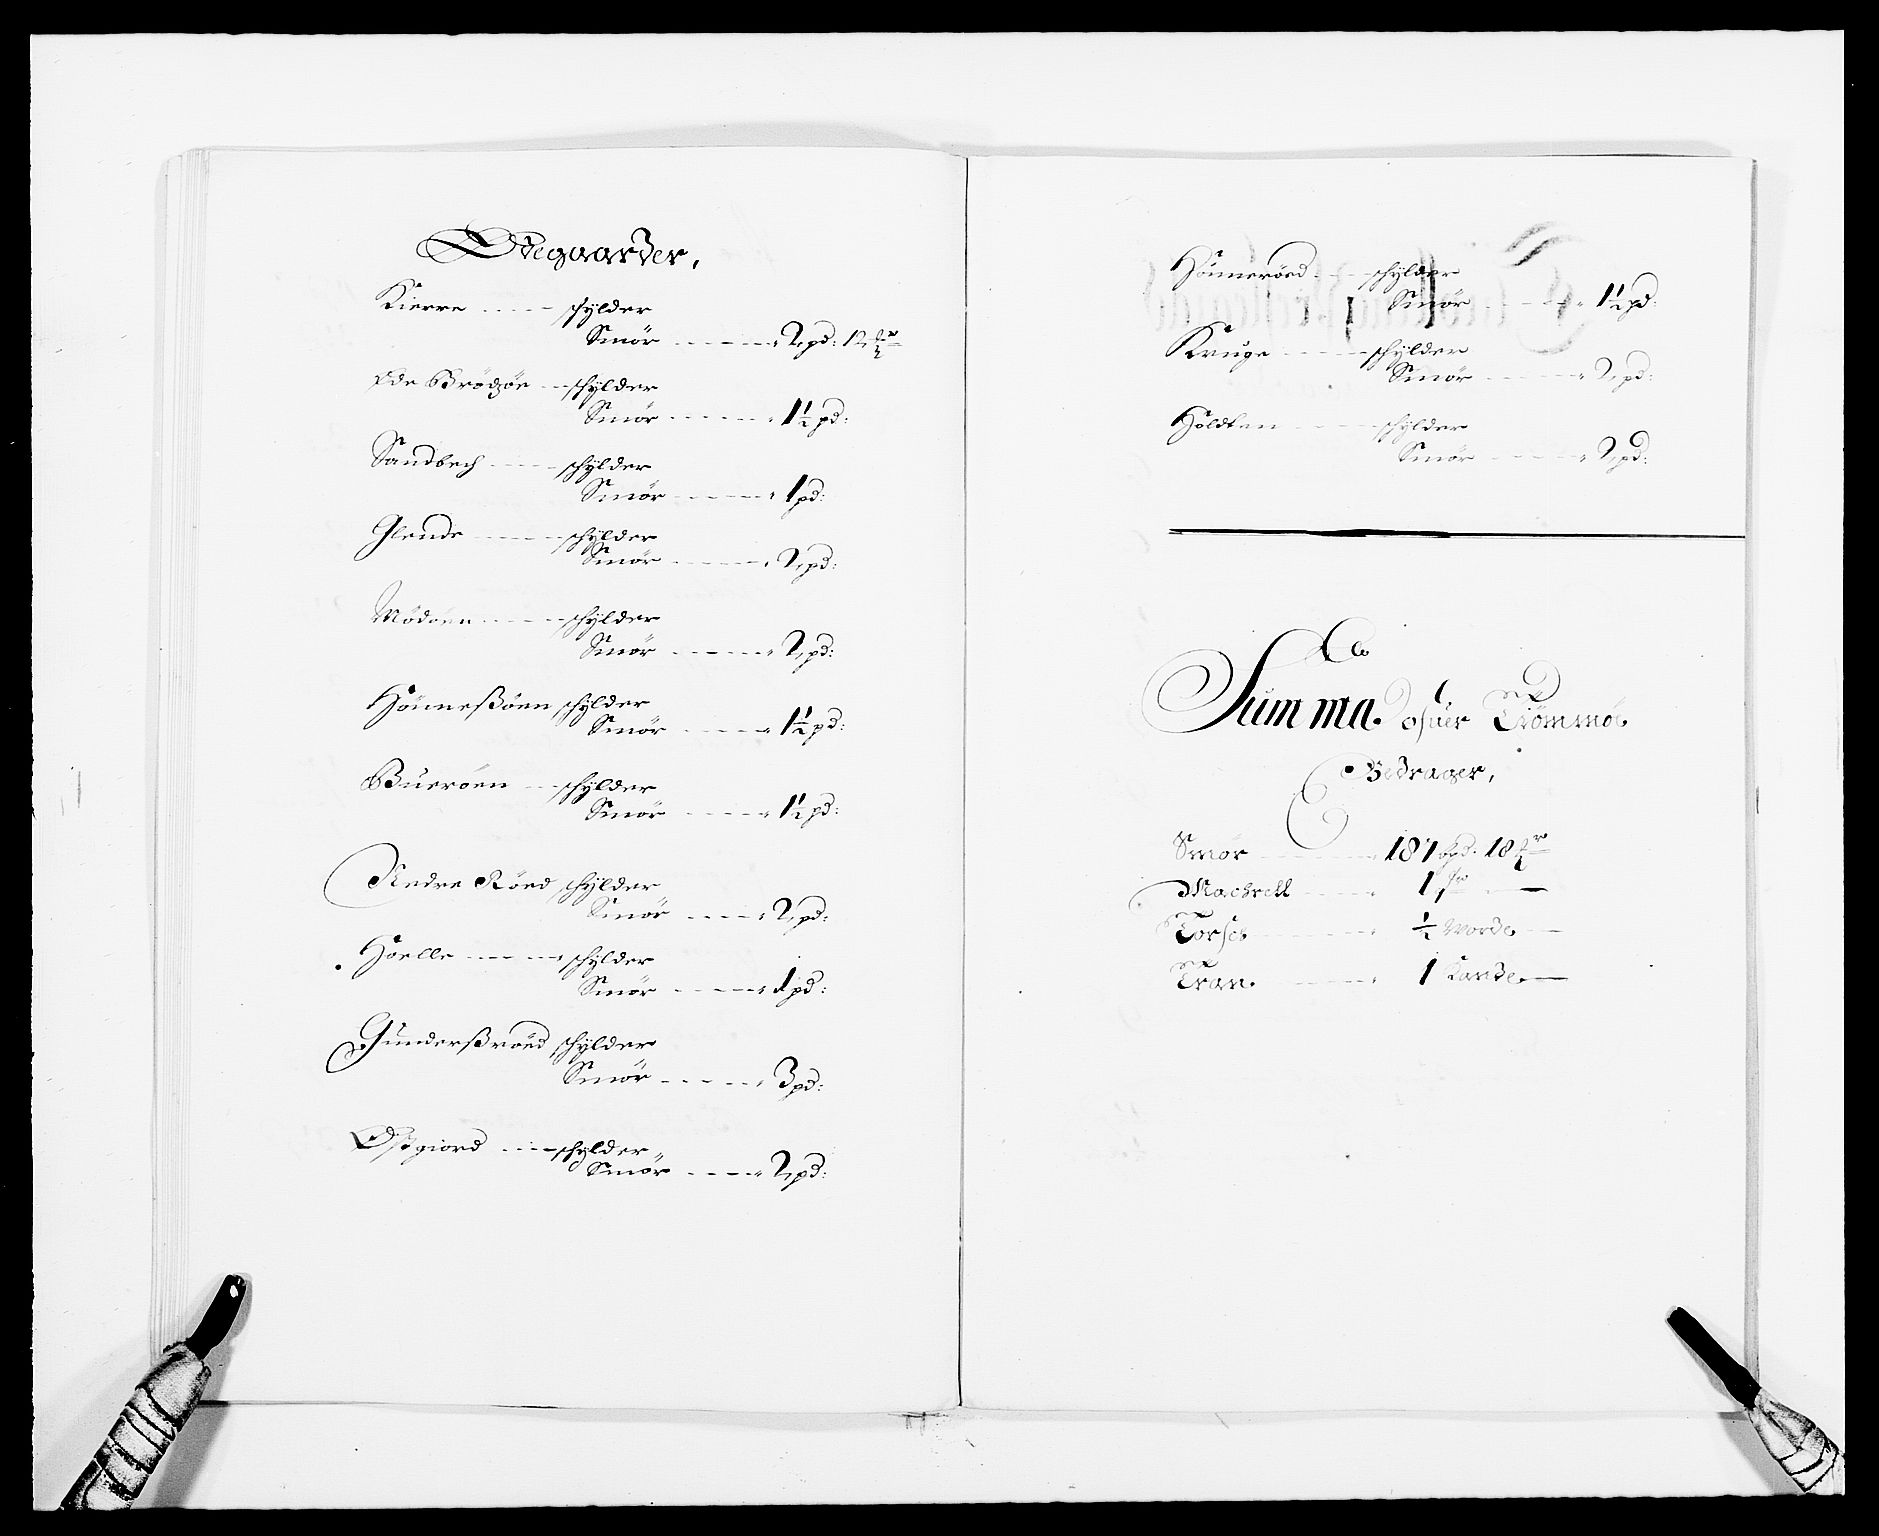 Ødegaarder,
Kierre ..... schylder
Smör ...... 2 pd: 12
Ode Brödzöe ... schylder
Smör ...... 1½ pd:
Sandbech ..... schylder
Smör ...... 1 pd:
Glende ..... schylder
Smör ...... 2 pd:
Mödöen ..... schylder
Smör ...... 2 pd:
Hönneßöen schylder
Smör ..... 1½ pd:
Bueröen ... schylder
Smör ..... 1½ pd:
Nedre Röed schylder
Smör ..... 2 pd:
Hoelle ..... schylder
Smör ..... 1 pd:
Gunderßröed schylder
Smör ..... 3 pd:
Østgiord ..... schylder
Smör ..... 2 pd:
Hönneröed ... schylder
Smör ..... 1½ pd:
Kruge ..... schylder
Smör ..... 2 pd:
Holdten ..... schylder
Smör ..... 2 pd:
Summa ofuer Trömmöe
Bedrager,
Smör ..... 187 pd. 18
Machrell ..... 1
Torsch ..... ½ Vorde
Tran ..... 1 Kande